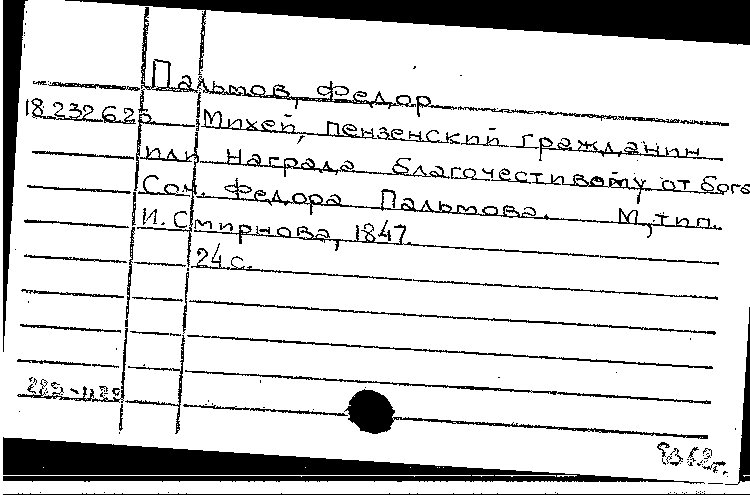 Пальмов, Федор
18.232.6.25 Михей, пензенский гражданин
или Награда благочестивому от бога
Соч. Федора Пальмова. М, тип.
И. Смирнова, 1847.
24 с.